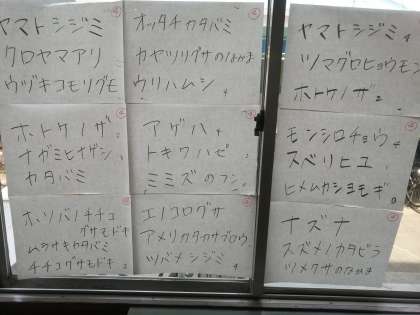 ヤマトシジミ
クロヤマアリ
ウヅキコモリグモ
オッタチカタバミ
カヤツリグサのなかま
ウリハムシ 4
ヤマトシジミ 4
ツマグロヒョウモン
ホトケノザ 2
ホトケノザ
ナガミヒナゲシ
カタバミ
アゲハ 4
トキワハゼ
ミミズのフン
モンシロチョウ 4
スベリヒユ
ヒメムカシヨモギ
ホソバノチチコ
グサモドキ
ムラサキカタバミ
チチコグサモドキ 2
エノコログサ
アメリカタカサブロウ
ツバメシジミ 4
ナズナ
スズメノカタビラ
ツメクサのなかま